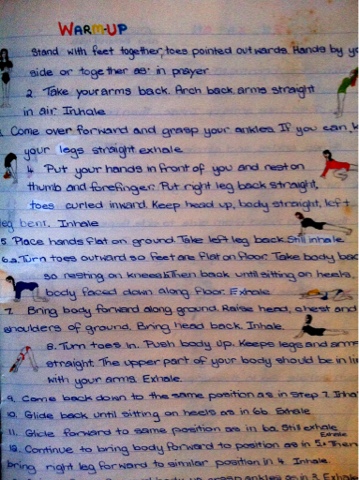 WARM-UP
Stand with feet together, toes pointed outwards. Hands by yo
side or together as in prayer
2. Take your arms back. Arch back arms straight
in air Inhale
Come over forward and grasp your ankles. If you can, k
your legs straight exhale.
4. Put your hands in front of you and rest on
thumb and forefinger. Put right leg back straight,
toes curled inward. Keep head up, body straight, left
leg bent. Inhale
5. Place hands flat on ground. Take left leg back. Still inhale
6.a. Turn toes outward so feet are flat on floor. Take body bac
so resting on knees. Then back until sitting on heels.
body faced down along floor. Exhale
7. Bring body forward along ground. Raise head, chest and
shoulders of ground. Bring head back. Inhale.
8. Turn toes in. Push body up. Keeps legs and arms
straight. The upper part of your body should be in li
with your arms. Exhale.
9. Come back down to the same position as in step 7. Inha
10. Glide back until sitting on heels as in 6b. Exhale
11. Glide forward to same position as in 6a. Still exhale
12. Continue to bring body forward to position as in 5. Then
Exhale
bring right leg forward to similar position in 4. Inhale.